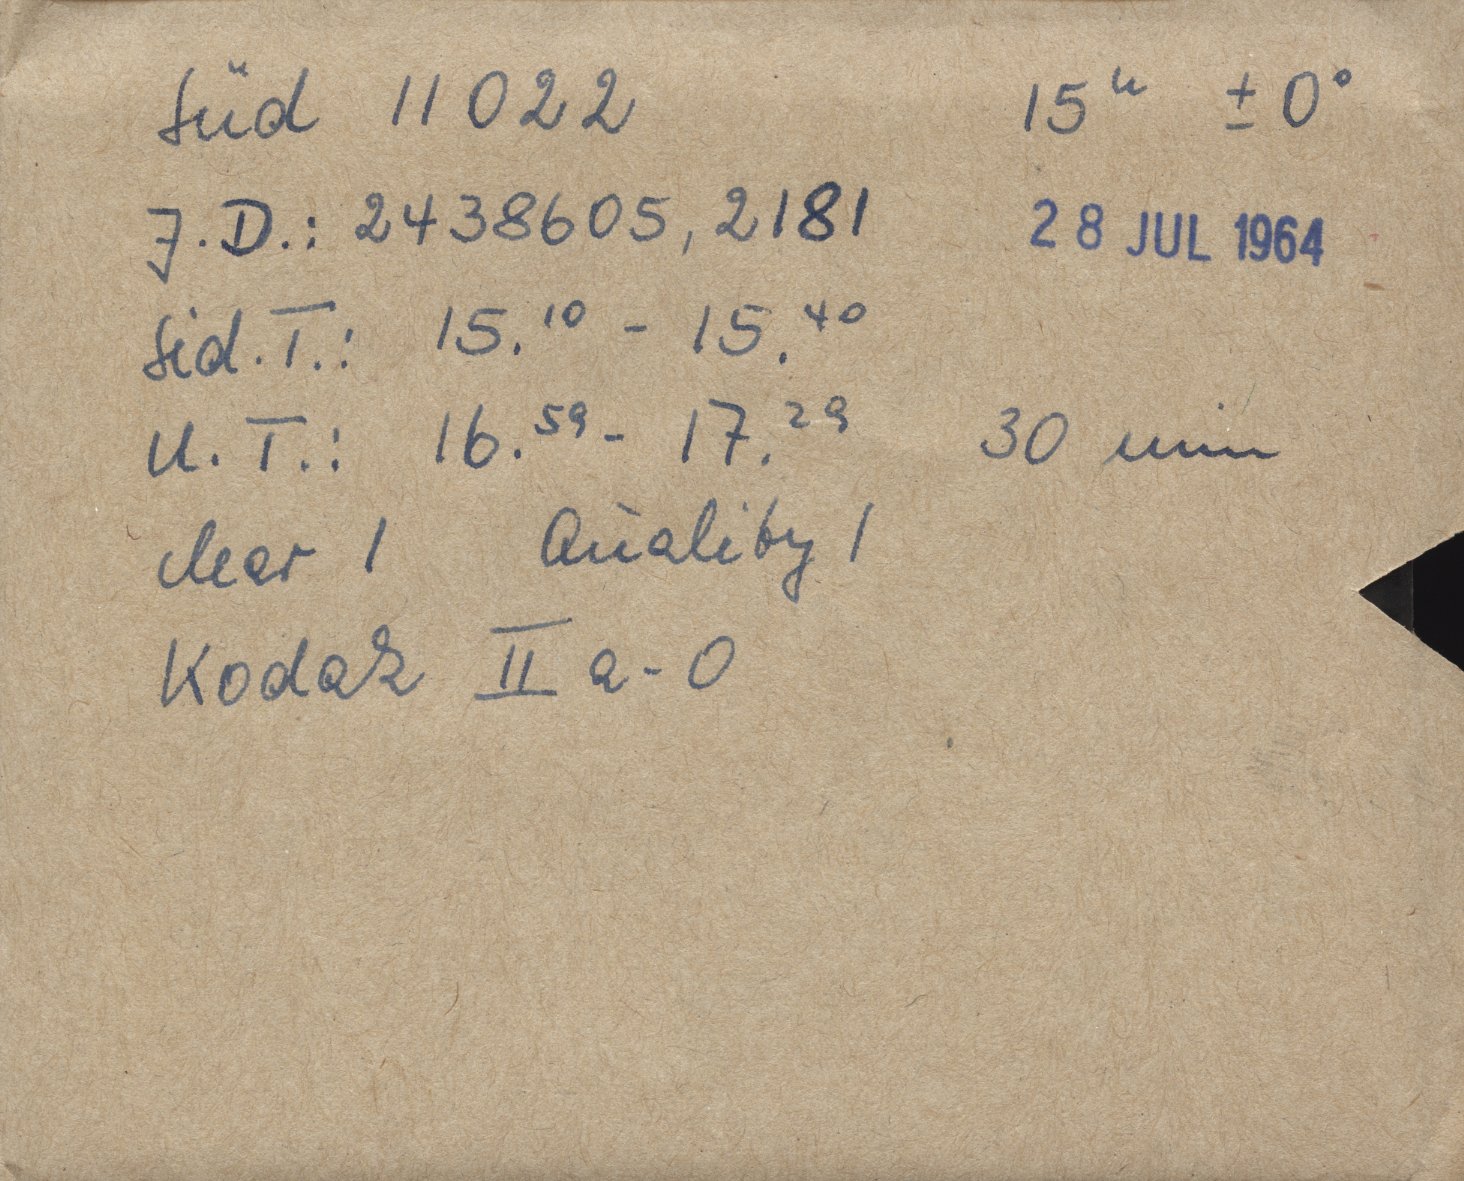 Süd 11022 15ʰ ± 0°
J.D.: 2438605,2181 28 JUL 1964
Sid.T.: 15.¹⁰ - 15.⁴⁰
U.T.: 16.⁵⁹ - 17.²⁹ 30 min
clear 1 Quality 1
Kodak II a-0